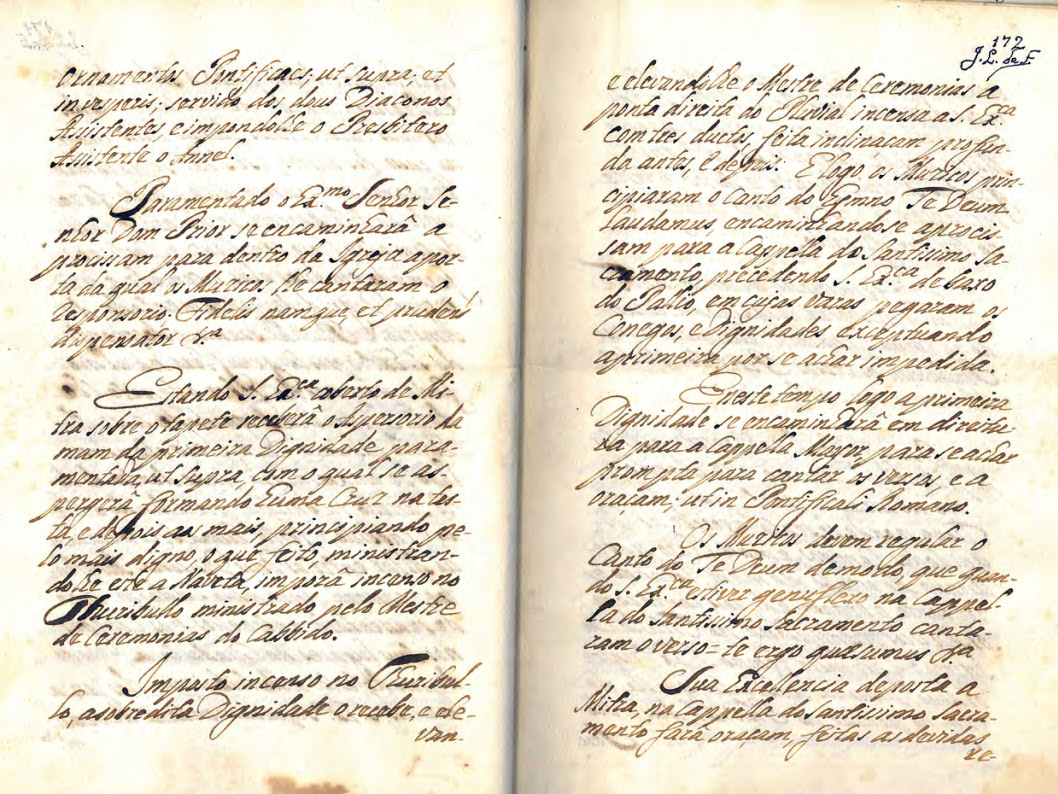 Ornamentos Pontificaes, ut supra, et
in vesperis, servido dos dous Diaconos
Assistentes, e impondolhe o Presbitero
Assistente o Annel.
Paramentado o Ex.mo Senhor Se-
nhor Dom Prior se encaminharâ a
procissam para dentro da Igreja a por-
ta da qual os Muzicos lhe cantaram o
responsorio. Fidelis namque, et prudens
dispensator &.a
Estando S. Ex.ca coberto de Mi-
tra sobre o tapete receberâ o Aspersorio da
mam da primeira Dignidade para-
mentada, ut supra, com o qual se as-
pergerâ formando huma Cruz na tes-
ta, e depois aos mais, principiando pe-
lo mais digno, o que feito, ministran-
dolhe este a Naveta, imporâ incenso no
Thuribulo ministrado pelo Mestre
de Ceremonias do Cabbido.
Imposto incenso no Thuribul-
lo, a sobredita Dignidade o recebe, e ele-
van-
172
J. L. de F.
e elevandolhe o Mestre de Ceremonias a
ponta direita do Pluvial incensa a S. Ex.ca
com tres ductos, feita inclinacam profun-
da antes, e depois. E logo os Muzicos prin-
cipiaram o Canto do Hymno Te Deum
laudamus, encaminhandose a procis-
sam para a Cappella do Santissimo Sa-
cramento, precedendo S. Ex.ca debaxo
do Palio, em cujas varas pegaram os
Conegos, e Dignidades exceptuando
a primeira por se achar impedida.
E neste tempo logo a primeira
Dignidade se encaminharâ em direitu-
ra para a Cappella Mayor, para se achar
prompta para cantar os versos, e a
oraçam, ut in Pontificali Romano.
Os Muzicos devem regular o
Canto do Te Deum de modo, que quan-
do S. Ex.ca estiver genuflexo na Cappel-
la do Santissimo Sacramento canta-
ram o verso = te ergo quæsumus &.a
Sua Excelencia deposta a
Mitra, na Cappella do Santissimo Sacra-
mento farâ oraçam, feitas as devidas
re-